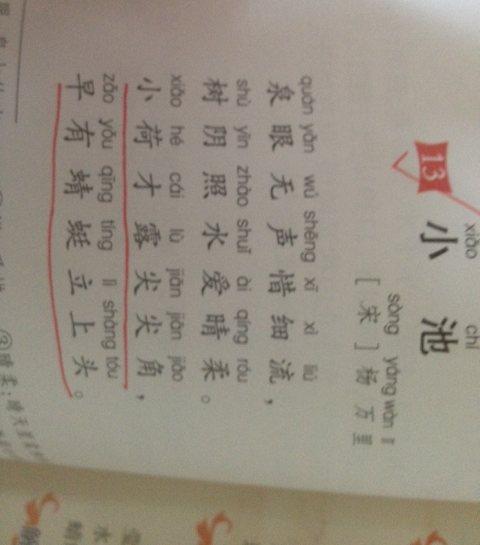 13
xiǎo chí
小 池
sòng yáng wàn lǐ
［宋］杨万里
quán yǎn wú shēng xī xì liú
泉眼无声惜细流，
shù yīn zhào shuǐ ài qíng róu
树阴照水爱晴柔。
xiǎo hé cái lù jiān jiān jiǎo
小荷才露尖尖角，
zǎo yǒu qīng tíng lì shàng tóu
早有蜻蜓立上头。